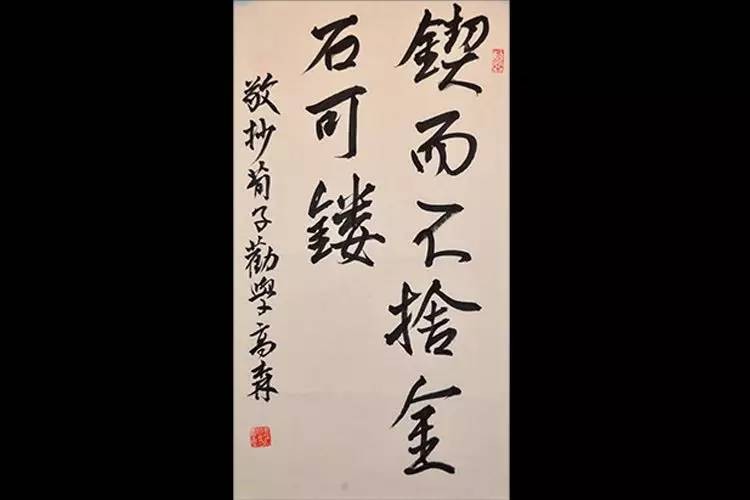 鍥而不捨金
石可鏤
敬抄荀子勸學高森